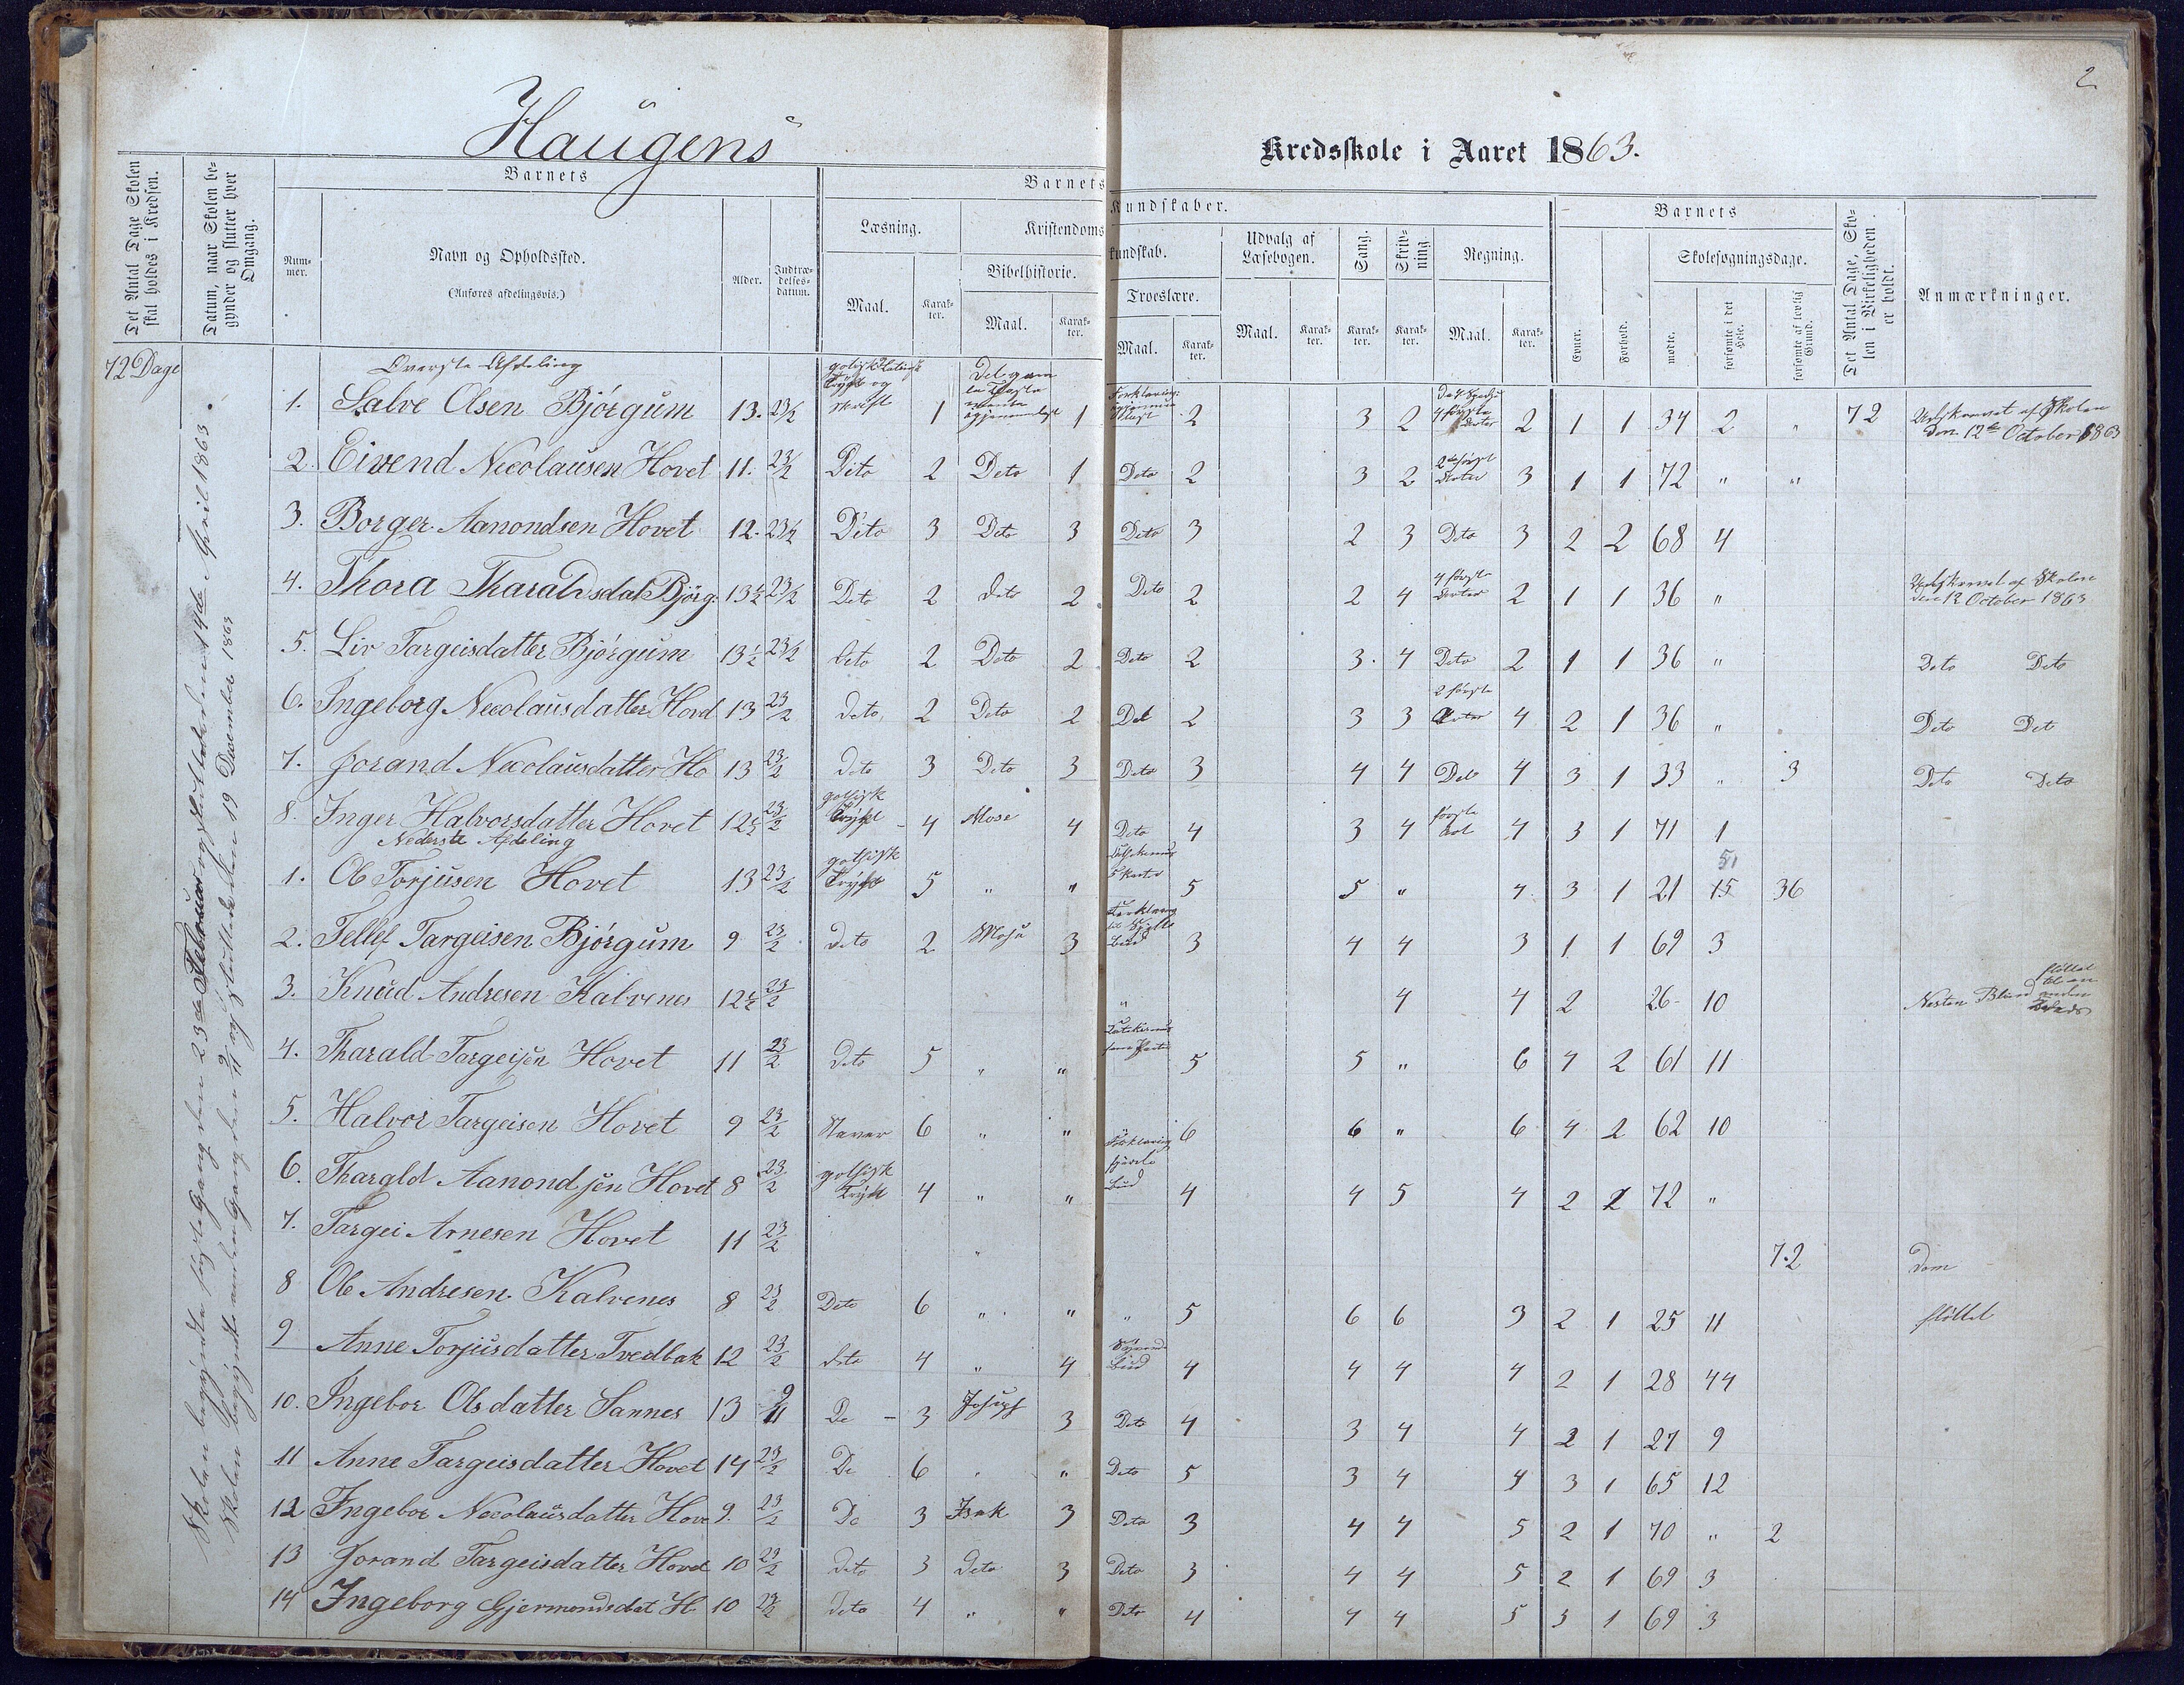 2
Haugens Kredsskole i Aaret 1863.
Det Antal Dage Skolen skal holdes i Kredsen.
Datum, naar Skolen begynder og slutter hver Omgang.
Barnets
Nummer.
Navn og Opholdssted.
(Anføres afdelingsvis.)
Alder.
Indtrædelsesdatum.
Barnets Kundskaber.
Læsning.
Maal.
Karakter.
Kristendomskundskab.
Bibelhistorie.
Maal.
Karakter.
Troeslære.
Maal.
Karakter.
Udvalg af Læsebogen.
Maal.
Karakter.
Sang.
Karakter.
Skrivning.
Karakter.
Regning.
Maal.
Karakter.
Barnets
Evner.
Forhold.
Skolesøgningsdage.
mødte.
forsømte i det Hele.
forsømte af lovlig Grund.
Det Antal Dage, Skolen i Virkeligheden er holdt.
Anmærkninger.
72 Dage
Skolen begyndte første Gang den 23de Februar og sluttede den 14de April 1863.
Skolen begyndte anden Gang den 9/11 og sluttede den 19 December 1863
Øverste Afdeling
1. Salve Olsen Bjørgum 13. 23/2 1 1 2 3 2 2 1 1 34 2 " 72 Udskrevet af Skolen den 12te October 1863
2. Eivend Nicolausen Hovet 11. 23/2 Dito 2 Deto 1 Deto 2 3 2 3 1 1 72 " "
3. Borger Aanondsen Hovet 12. 23/2 Dito 3 Deto 3 Deto 3 2 3 Deto 3 2 2 68 4
4. Thora Tharaldsdat Bjørg. 13½ 23/2 Deto 2 deto 2 Deto 2 2 4 4 første Arter 2 1 1 36 " Udskrevet af Skolen den 12 October 1863
5. Liv Targeisdatter Bjørgum 13½ 23/2 deto 2 Deto 2 Deto 2 3. 4 Deto 2 1 1 36 " Deto Deto
6. Ingeborg Nicolausdatter Hovd 13 23/2 deto, 2 Deto 2 Det 2 3 3 2 første Arter 4 2 1 36 " Deto Det
7. Jorand Nicolausdatter Ho 13 23/2 deto 3 Deto 3 Deto 3 4 4 Deto 4 3 1 33 " 3 Deto Deto
8. Inger Halvorsdatter Hovet 12½ 23/2 gothisk Trykt - 4 Mose 4 Deto 4 3 4 første Art 4 3 1 71 1
Nederste Afdeling
1. Ole Torjusen Hovet 13 23/2 gothisk Trykt 5 " " 5 5 " 4 3 1 21 51 15 36
2. Tellef Targeisen Bjørgum 9 23/2 deto 2 Mose 3 3 4 4 3 1 1 69 3
3. Knud Andresen Kalvenes 12½ 23/2 " 4 4 2 26 - 10 Nesten Blind flöttet til en anden Kreds
4. Tharald Targeisen Hovet 11 23/2 deto 5 " " 5 5 " 6 4 2 61 11
5. Halvor Targeisen Hovet 9 23/2 Staver 6 " " 6 6 " 6 4 2 62 10
6. Tharald Aanondsen Hovet 8 23/2 gothisk Trykt 4 " " 4 4 5 4 2 2 72 "
7. Targei Arnesen Hovet 11 23/2 " 72
8 Ole Andresen Kalvenes 8 23/2 Deto 6 " " " 5 6 6 3 2 1 25 11 flöttet
9 Anne Torjusdatter Tvedbak 12 23/2 deto 4 " 4 4 4 4 4 2 1 28 44
10. Ingebor Olsdatter Sannes 13 9/11 De - 3 Josef 3 Deto 4 3 4 4 2 1 27 9
11 Anne Targeisdatter Hovet 14 23/2 De 6 " " Deto 5 3 4 4 3 1 65 12
12 Ingebor Nicolausdatter Hove 9. 23/2 De 3 Isak 3 Deto 3 4 4 5 2 1 70 " 2
13 Jorand Targeisdatter Hovet 10 23/2 deto 3 deto 3 Deto 3 4 4 5 2 1 69 3
14 Ingeborg Gjermondsdat H 10 23/2 deto 4 " " Deto 4 4 4 5 3 1 69 3